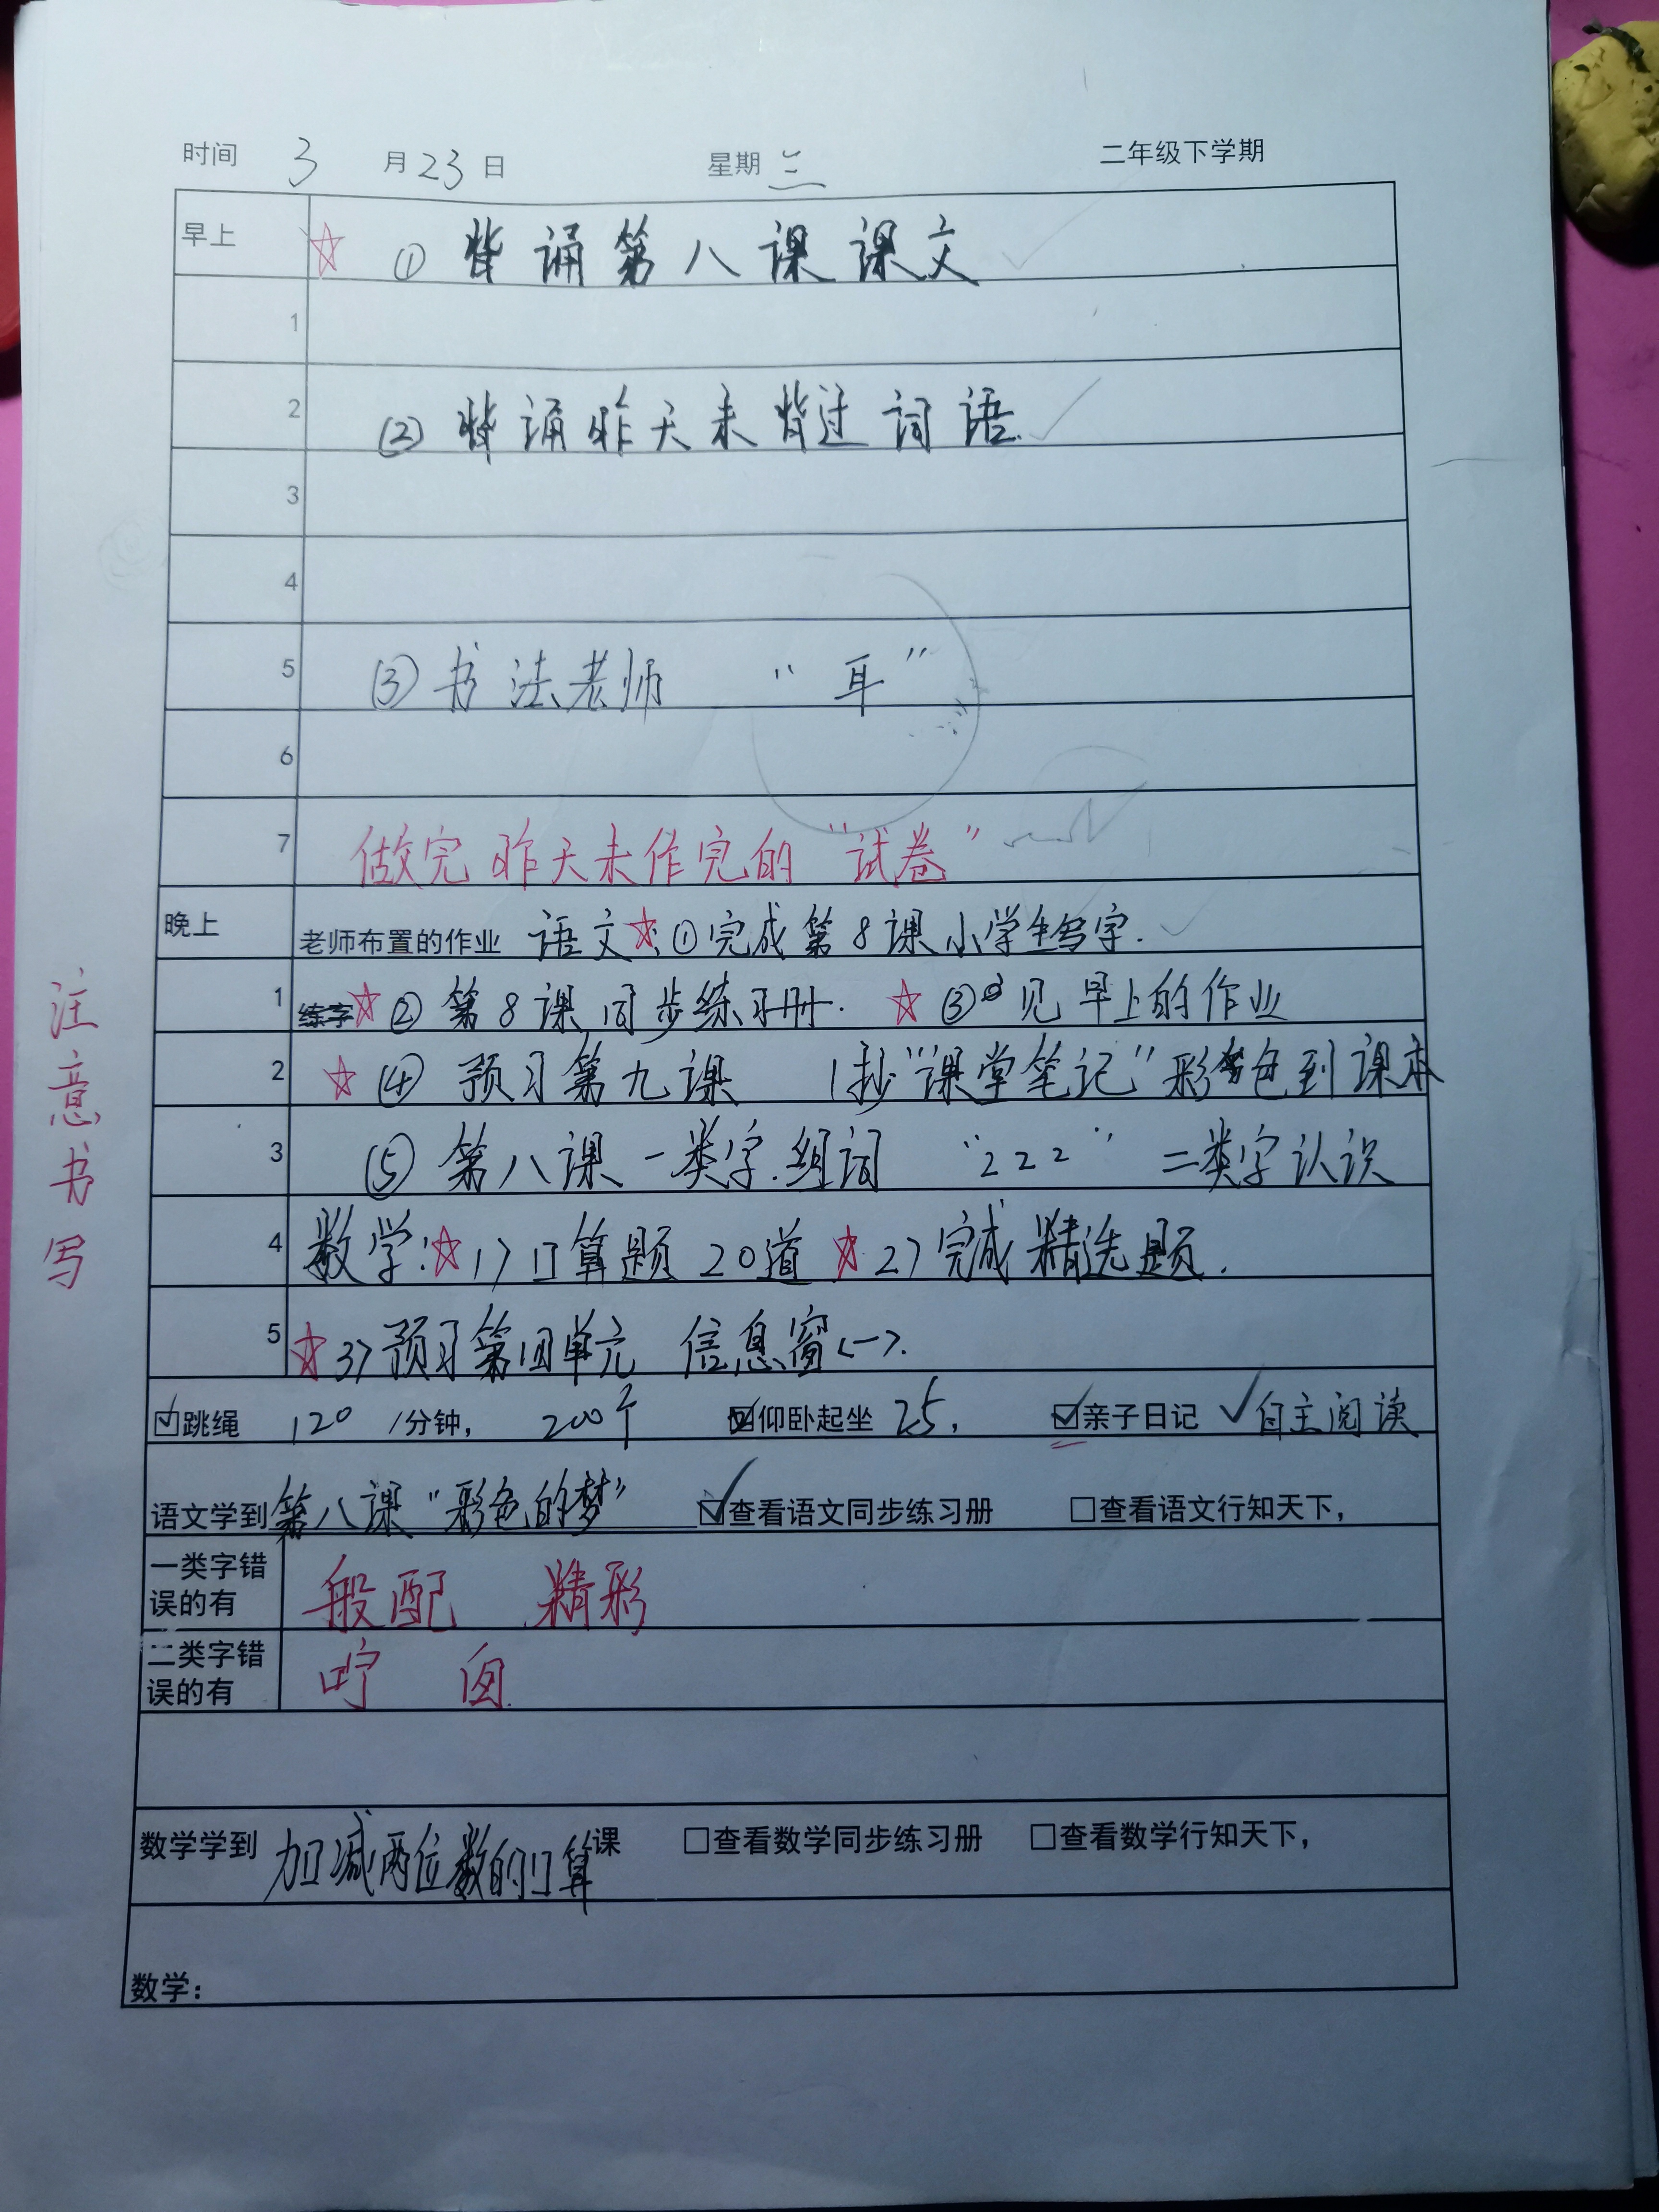 时间 3 月 23 日 星期 三 二年级下学期
早上 ☆ ① 背诵第八课课文
1
2 (2) 背诵昨天未背过词语.
3
4
5 (3) 书法老师 “耳”
6
7 做完昨天未作完的“试卷”
晚上 老师布置的作业 语文☆:①完成第8课小学生写字.
1 练字☆② 第8课同步练习册. ☆ ③ 见早上的作业
2 ☆ (4) 预习第九课 抄“课堂笔记”彩色到课本
3 (5) 第八课一类字.组词 “222” 二类字认识
4 数学:☆1>口算题20道 ☆2>完成精选题.
5 ☆3>预习第四单元 信息窗<一>.
☑跳绳 120 /分钟, 200个 ☑仰卧起坐 25, ☑亲子日记 ✓自主阅读
语文学到第八课“彩色的梦” ☑查看语文同步练习册 □查看语文行知天下,
一类字错
误的有 般配 精彩
二类字错
误的有 咛 囱.
数学学到 加减两位数的口算课 □查看数学同步练习册 □查看数学行知天下,
数学:
注意书写